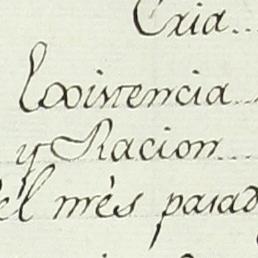 Cria..
Existencia..
y Racion...
el més pasad